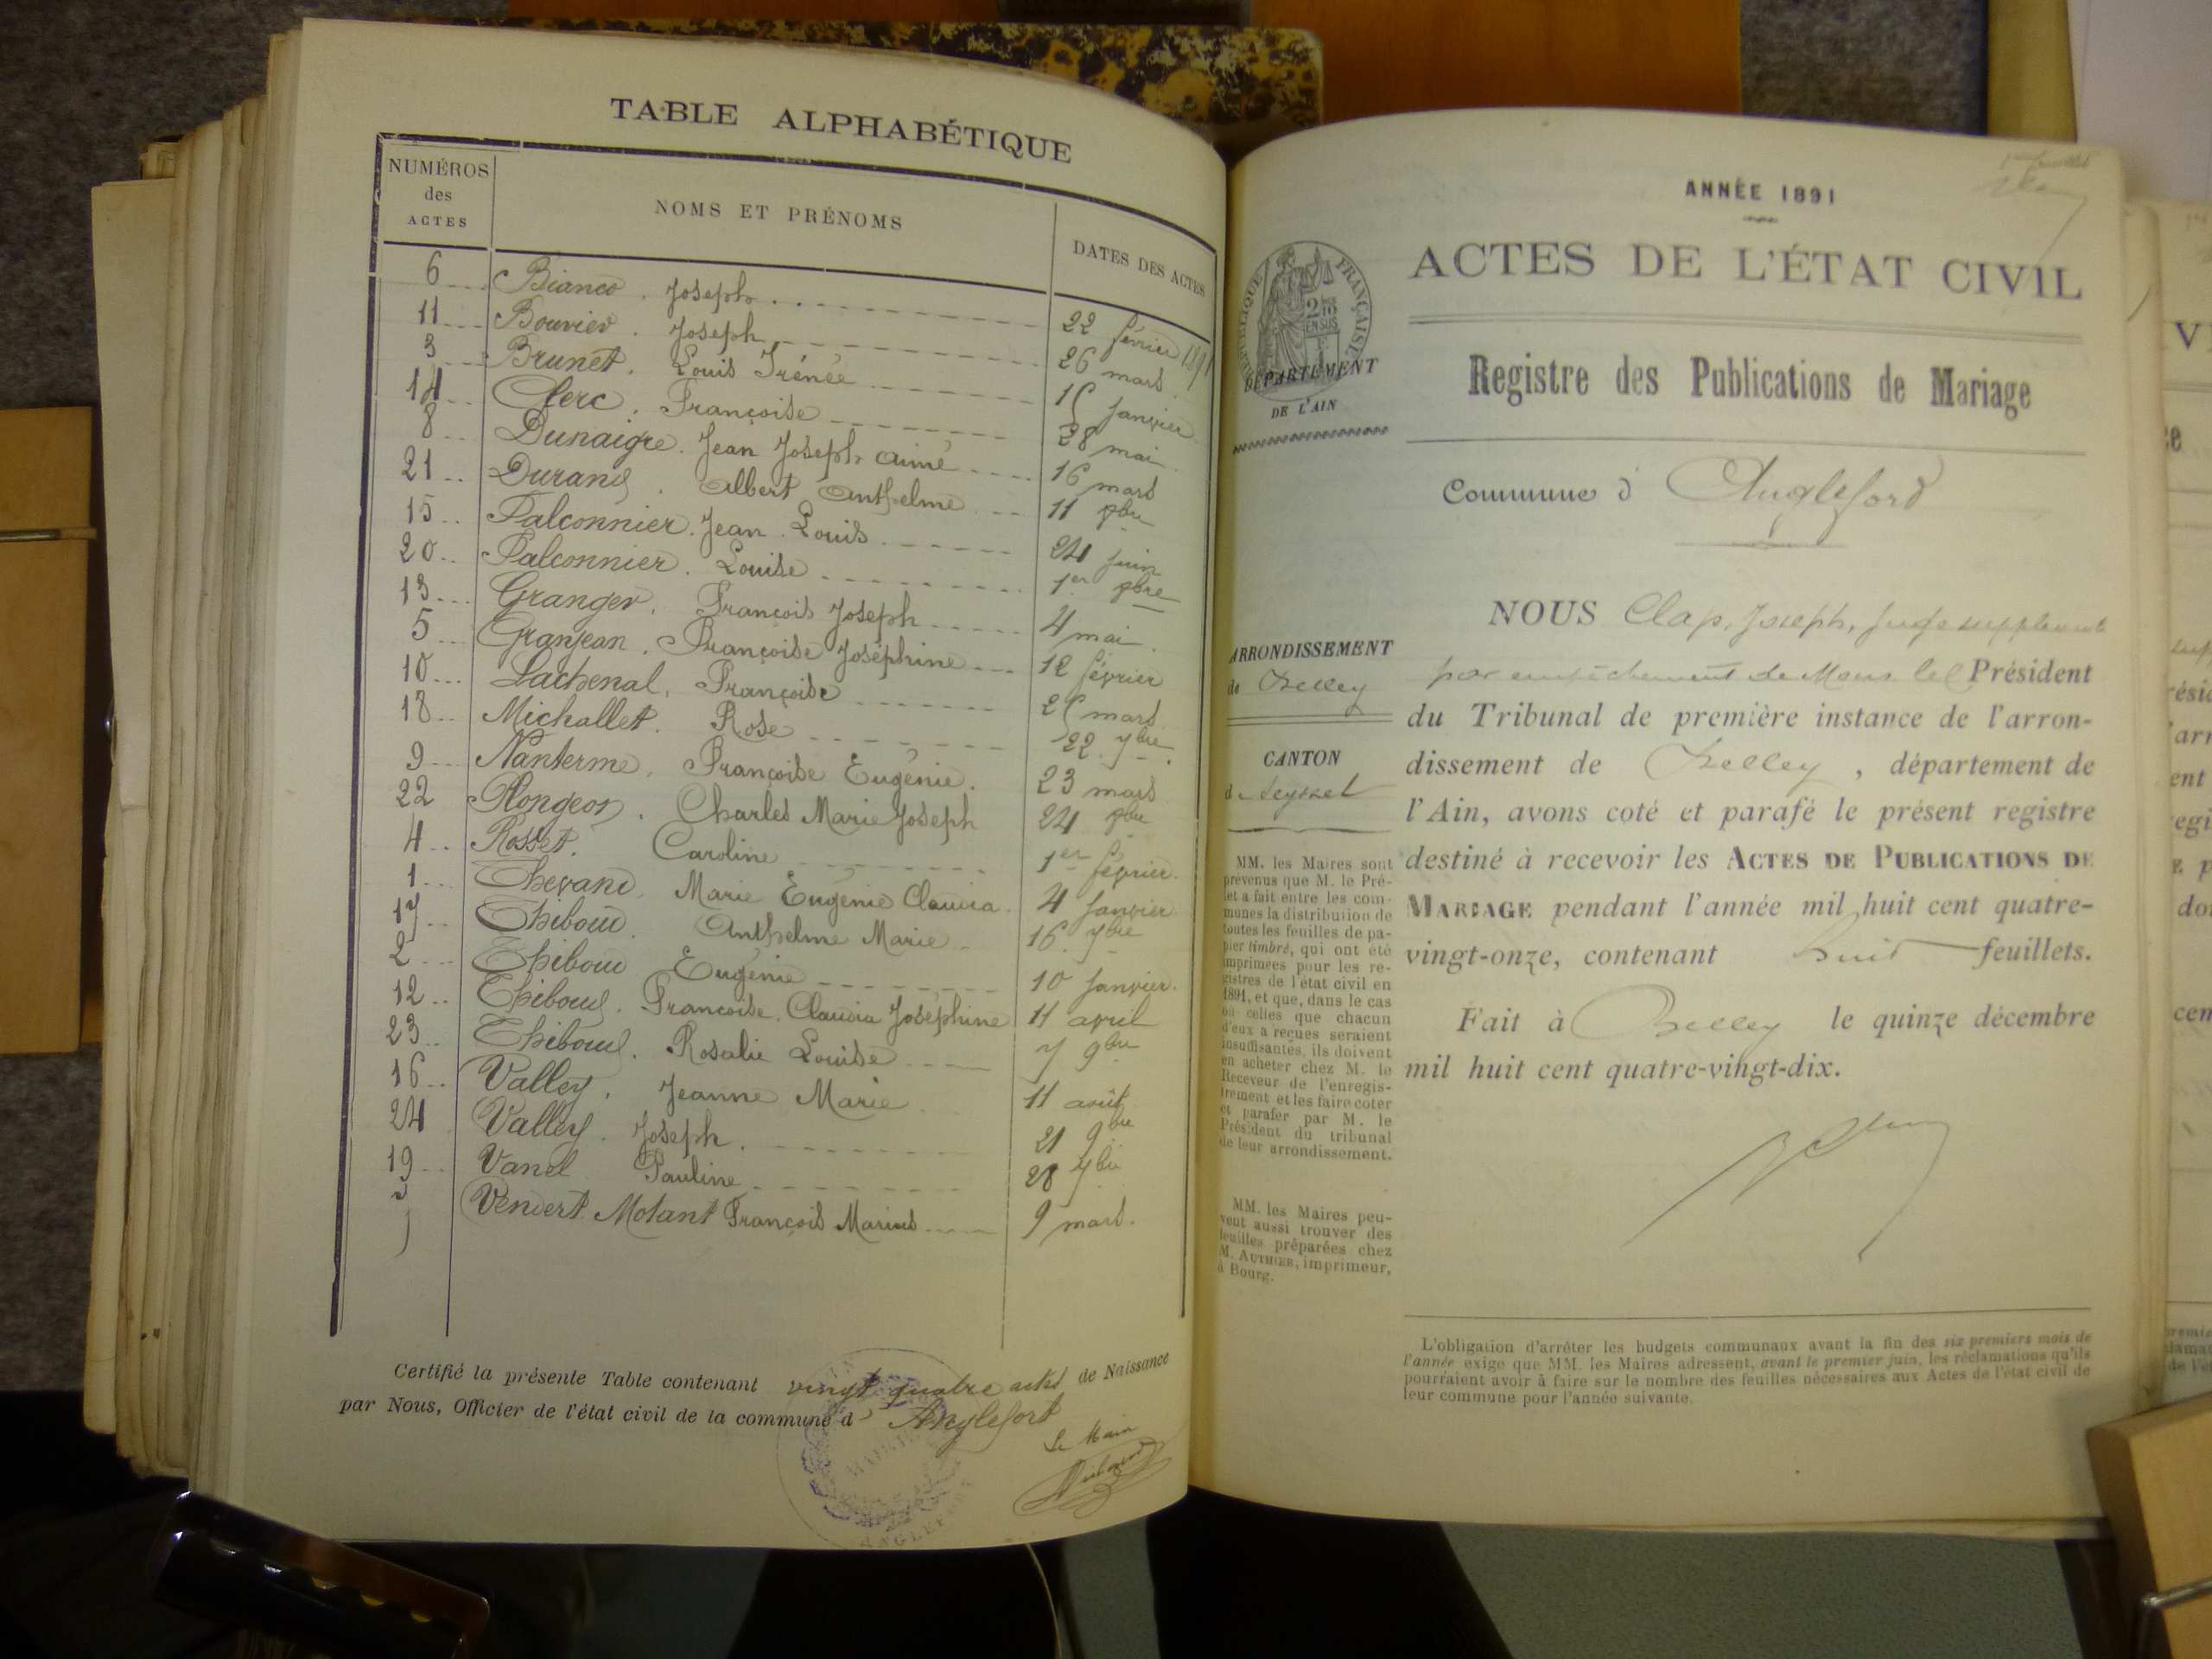 TABLE ALPHABÉTIQUE
NUMÉROS des ACTES
NOMS ET PRÉNOMS
DATES DES ACTES
6 Bianco. Joseph 22 février 1891
11 Bouvier. Joseph 26 mars
3 Brunet. Louis Irénée 15 janvier
14 Clerc. Françoise 28 mai
8 Dunaigre. Jean Joseph Aimé 16 mars
21 Durand. Albert Anthelme 11 8bre
15 Falconnier. Jean Louis 24 juin
20 Falconnier. Louise 1er 8bre
13 Granger. François Joseph 4 mai
5 Granjean. Françoise Joséphine 12 février
10 Lachenal. Françoise 25 mars
18 Michallet. Rose 22 7bre
9 Nanterme. Françoise Eugénie. 23 mars
22 Plongeon. Charles Marie Joseph 24 8bre
4 Rosset. Caroline 1er février.
1 Thevand. Marie Eugénie Claudia. 4 janvier
17 Thiboud. Anthelme Marie 16 7bre
2 Thiboud Eugénie 10 janvier.
12 Thiboud. Francoise. Claudia Joséphine 11 avril
23 Thiboud. Rosalie Louise 7 9bre
16 Valley. Jeanne Marie 11 août
24 Valley. Joseph. 21 9bre
19 Vanel Pauline 28 7bre
7 Vendert Motant François Marius 9 mars.
Certifié la présente Table contenant vingt quatre actes de Naissance
par Nous, Officier de l'état civil de la commune d' Anglefort
Le Maire
ANGLEFORT
ANNÉE 1891
ACTES DE L'ÉTAT CIVIL
RÉPUBLIQUE FRANÇAISE
DÉPARTEMENT
DE L'AIN
Registre des Publications de Mariage
Commune d' Anglefort
ARRONDISSEMENT
de Belley
CANTON
d Seyssel
MM. les Maires sont
prévenus que M. le Pré-
fet a fait entre les com-
munes la distribution de
toutes les feuilles de pa-
pier timbré, qui ont été
imprimées pour les re-
gistres de l'état civil en
1891, et que, dans le cas
où celles que chacun
d'eux a reçues seraient
insuffisantes, ils doivent
en acheter chez M. le
Receveur de l'enregis-
trement et les faire coter
et parafer par M. le
Président du tribunal
de leur arrondissement.
MM. les Maires peu-
vent aussi trouver des
feuilles préparées chez
M. AUTHIER, imprimeur,
à Bourg.
NOUS Clap, Joseph, juge suppléant
par empêchement de Mons. le Président
du Tribunal de première instance de l'arron-
dissement de Belley, département de
l'Ain, avons coté et parafé le présent registre
destiné à recevoir les ACTES DE PUBLICATIONS DE
MARIAGE pendant l'année mil huit cent quatre-
vingt-onze, contenant huit feuillets.
Fait à Belley le quinze décembre
mil huit cent quatre-vingt-dix.
L'obligation d'arrêter les budgets communaux avant la fin des six premiers mois de
l'année exige que MM. les Maires adressent, avant le premier juin, les réclamations qu'ils
pourraient avoir à faire sur le nombre des feuilles nécessaires aux Actes de l'état civil de
leur commune pour l'année suivante.